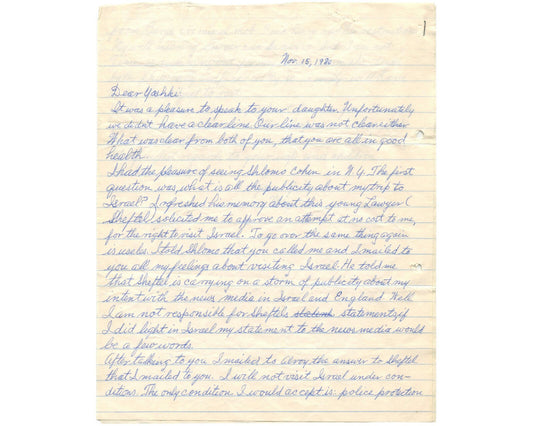 1
Nov. 15, 1980
Dear Yoshki
It was a pleasure to speak to your daughter. Unfortunately
we didn't have a clear line. Our line was not clear either.
What was clear from both of you, that you are all in good
health.
I had the pleasure of seeing Shlomo Cohen in N.Y. The first
question was, what is all the publicity about my trip to
Israel? I refreshed his memory about this young Lawyer (
Sheftel) solicited me to approve an attempt at no cost to me,
for the right to visit Israel. To go over the same thing again
is useles. I told Shlomo that you called me and I mailed to
you all my feelings about visiting Israel. He told me
that Sheftel is carrying on a storm of publicity about my
intent with the news media in Israel and England. Well
I am not responsible for Sheftels statements, if
I did light in Israel my statement to the news media would
be a few words.
After talking to you I mailed to Alroy the answer to Sheftel
that I mailed to you. I will not visit Israel under con-
ditions. The only condition I would accept is: police protection